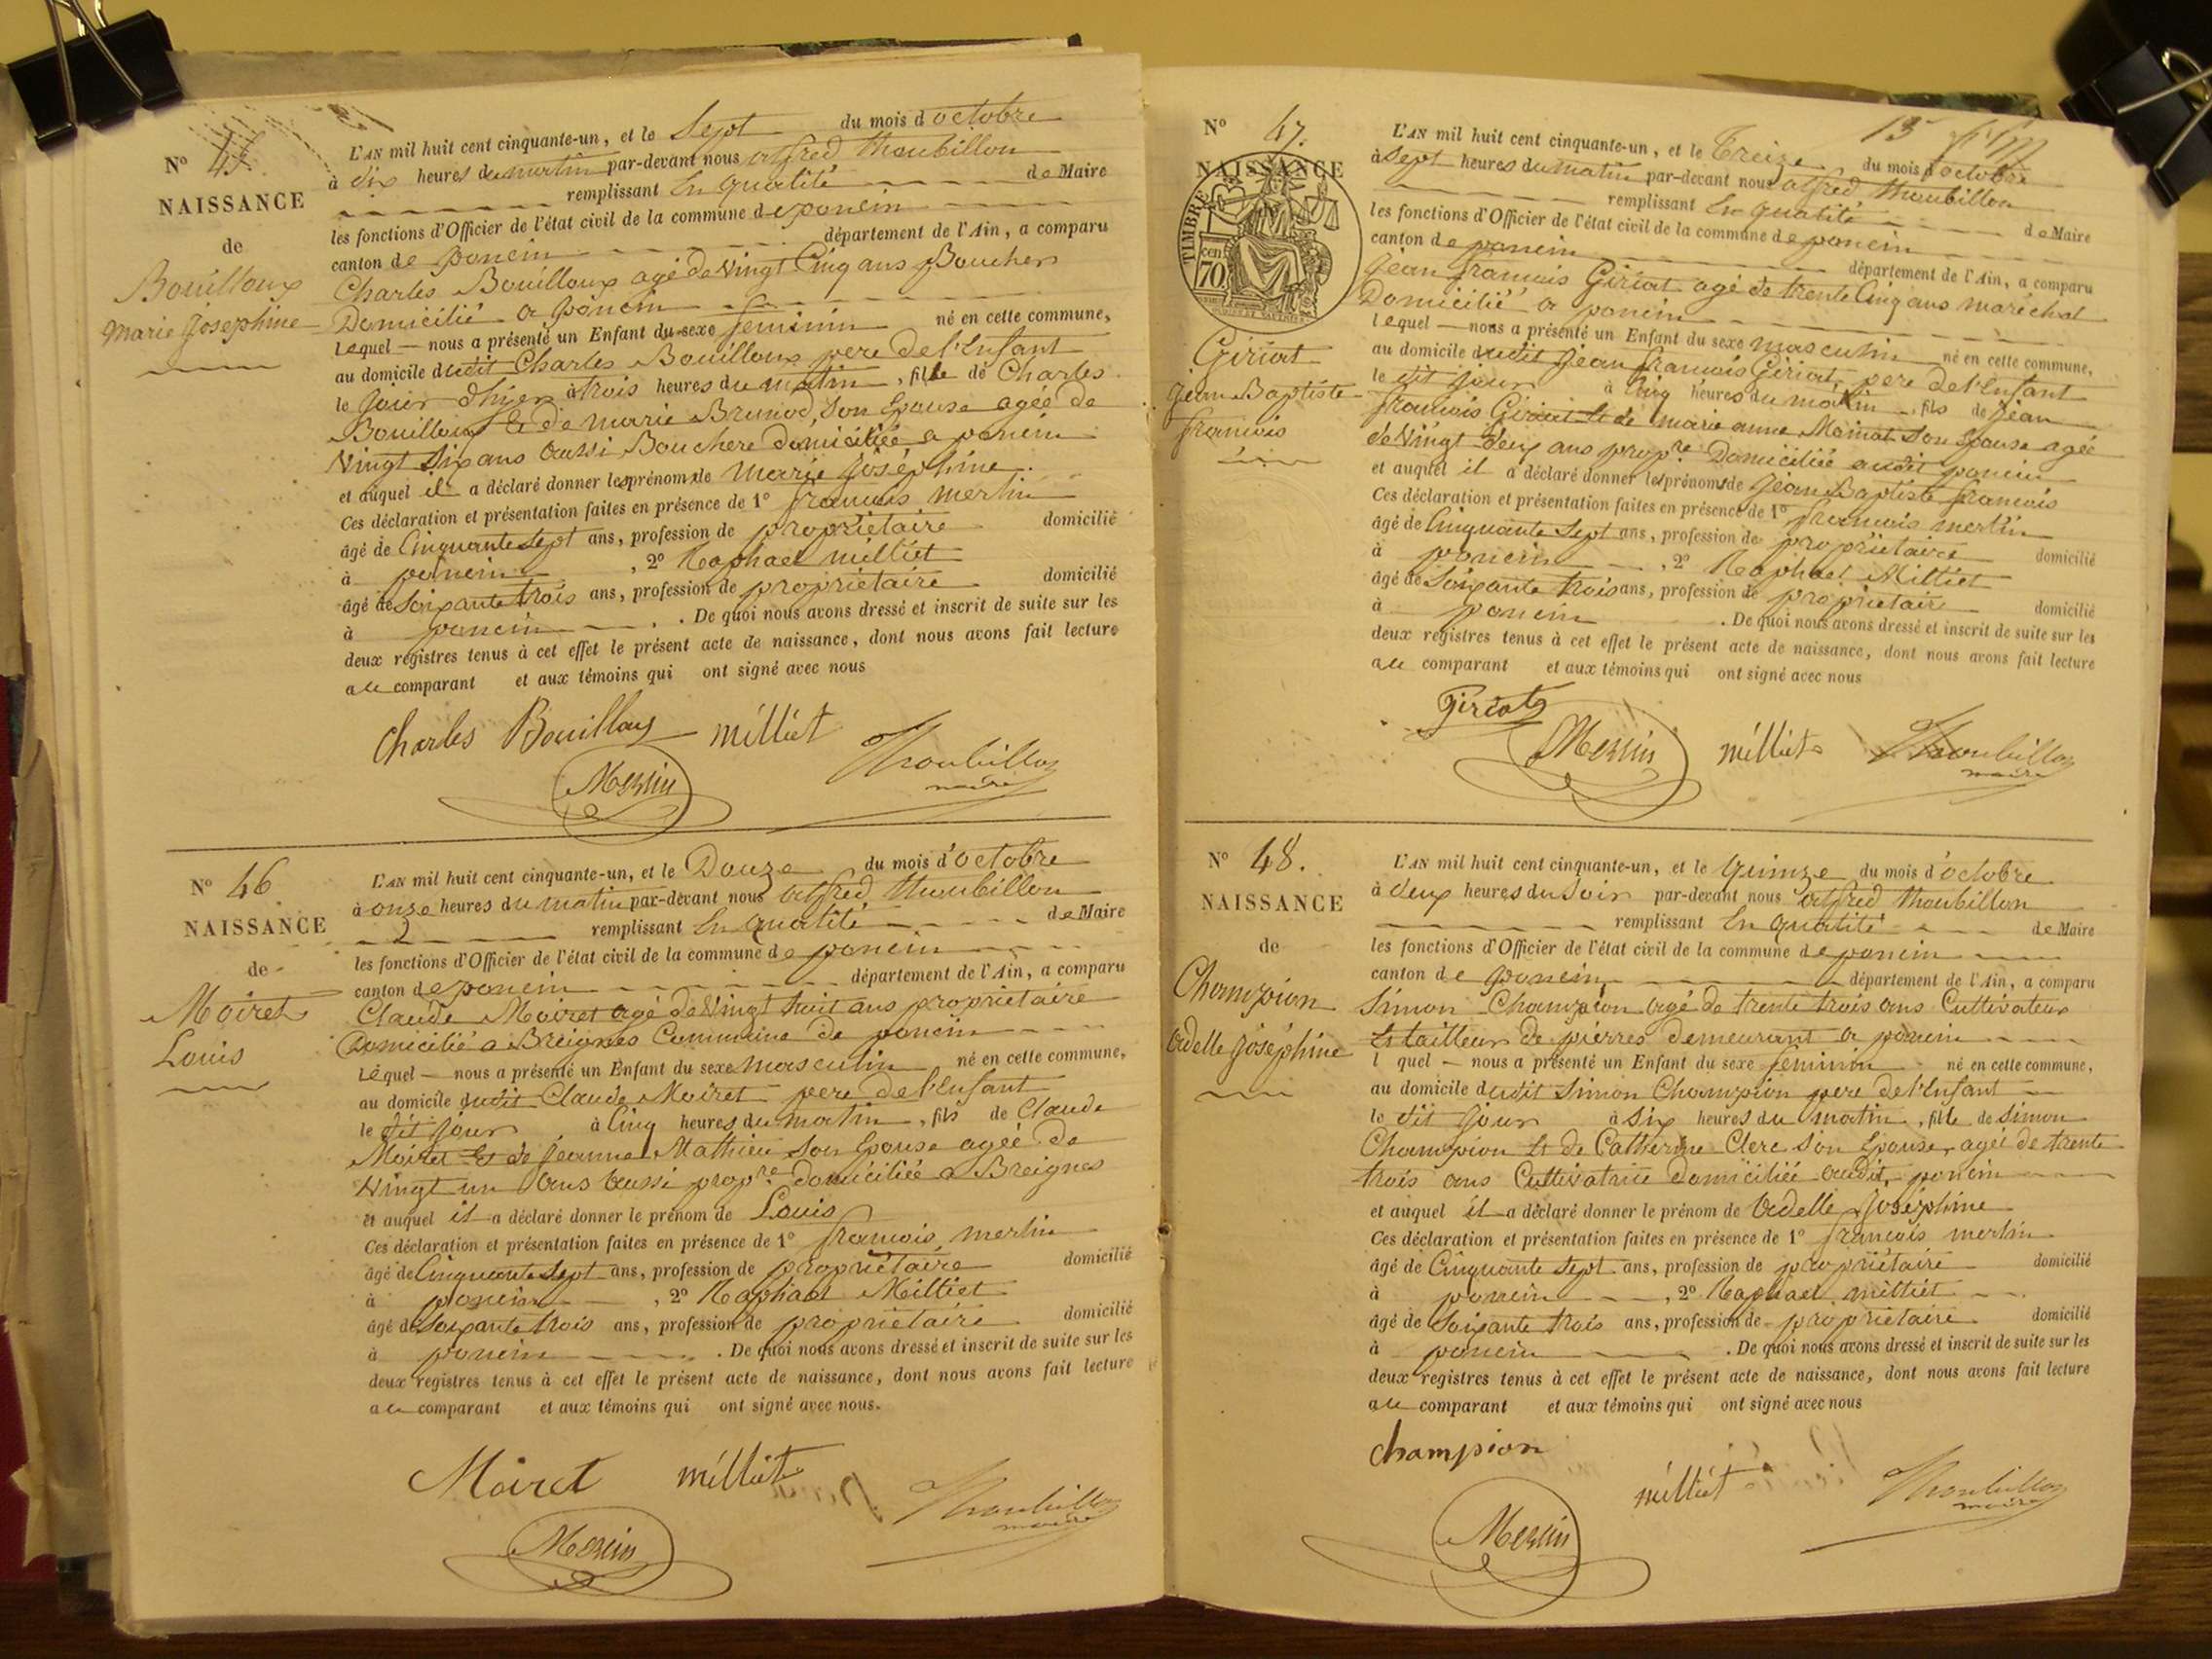 N° 45.
NAISSANCE
de
Bouilloux
Marie Josephine
L'AN mil huit cent cinquante-un, et le Sept du mois d'octobre
à dix heures du matin par-devant nous alfred thoubillon
remplissant En qualité de Maire
les fonctions d'Officier de l'état civil de la commune de poncin
canton de poncin département de l'Ain, a comparu
Charles Bouilloux agé de Vingt Cinq ans Boucher
Domicilié a poncin
Lequel nous a présenté un Enfant du sexe feminin né en cette commune,
au domicile dudit Charles Bouilloux pere de l'Enfant
le jour d'hyer à trois heures du matin, fille de Charles
Bouilloux Et de marie Brunod, son Epouse agée de
Vingt Six ans aussi Bouchere domiciliée a poncin
et auquel il a déclaré donner les prénoms de marie joséphine.
Ces déclaration et présentation faites en présence de 1° francois merlin
âgé de Cinquante Sept ans, profession de proprietaire domicilié
à poncin, 2° Raphael milliet
âgé de Soixante trois ans, profession de proprietaire domicilié
à poncin. De quoi nous avons dressé et inscrit de suite sur les
deux registres tenus à cet effet le présent acte de naissance, dont nous avons fait lecture
au comparant et aux témoins qui ont signé avec nous
Charles Bouilloux milliet Thoubillon
maire
Merlin
N° 46
NAISSANCE
de
Moiret
Louis
L'AN mil huit cent cinquante-un, et le Douze du mois d'octobre
à onze heures du matin par-devant nous alfred thoubillon
remplissant En qualité de Maire
les fonctions d'Officier de l'état civil de la commune de poncin
canton de poncin département de l'Ain, a comparu
Claude Moiret agé de Vingt huit ans proprietaire
Domicilié a Breignes Commune de poncin
Lequel nous a présenté un Enfant du sexe masculin né en cette commune,
au domicile dudit Claude Moiret pere de l'Enfant
le dit jour à Cinq heures du matin, fils de Claude
Moiret Et de jeanne Mathieu son Epouse agée de
Vingt un ans aussi propre domiciliée a Breignes
et auquel il a déclaré donner le prénom de Louis
Ces déclaration et présentation faites en présence de 1° francois merlin
âgé de Cinquante Sept ans, profession de proprietaire domicilié
à poncin, 2° Raphael Milliet
âgé de Soixante trois ans, profession de proprietaire domicilié
à poncin. De quoi nous avons dressé et inscrit de suite sur les
deux registres tenus à cet effet le présent acte de naissance, dont nous avons fait lecture
au comparant et aux témoins qui ont signé avec nous.
Moiret milliet Thoubillon
maire
Merlin
13
N° 47.
NAISSANCE
TIMBRE
70 cen
Giriat
jean Baptiste
francois
L'AN mil huit cent cinquante-un, et le treize du mois d'octobre
à Sept heures du matin par-devant nous alfred thoubillon
remplissant En qualité de Maire
les fonctions d'Officier de l'état civil de la commune de poncin
canton de poncin département de l'Ain, a comparu
jean francois Giriat agé de trente Cinq ans maréchal
Domicilié a poncin
Lequel nous a présenté un Enfant du sexe masculin né en cette commune,
au domicile dudit jean francois Giriat, pere de l'Enfant
le dit jour à Cinq heures du matin, fils de jean
francois Giriat Et de marie anne Moinat son Epouse agée
de Vingt deux ans propre Domiciliée audit poncin
et auquel il a déclaré donner les prénoms de jean Baptiste francois
Ces déclaration et présentation faites en présence de 1° francois merlin
âgé de Cinquante Sept ans, profession de proprietaire domicilié
à poncin, 2° Raphael Milliet
âgé de Soixante trois ans, profession de proprietaire domicilié
à poncin. De quoi nous avons dressé et inscrit de suite sur les
deux registres tenus à cet effet le présent acte de naissance, dont nous avons fait lecture
au comparant et aux témoins qui ont signé avec nous
Giriat
Merlin milliet Thoubillon
maire
N° 48.
NAISSANCE
de
Champion
adelle joséphine
L'AN mil huit cent cinquante-un, et le quinze du mois d'octobre
à deux heures du Soir par-devant nous alfred thoubillon
remplissant En qualité de Maire
les fonctions d'Officier de l'état civil de la commune de poncin
canton de poncin, département de l'Ain, a comparu
Simon Champion agé de trente trois ans Cultivateur
Et tailleur de pierres demeurant a poncin
l quel nous a présenté un Enfant du sexe feminin né en cette commune,
au domicile dudit Simon Champion pere de l'Enfant
le dit jour à Six heures du matin, fille de Simon
Champion Et de Catherine Clerc son Epouse, agée de trente
trois ans Cultivatrice domiciliée audit poncin
et auquel il a déclaré donner le prénom de adelle joséphine
Ces déclaration et présentation faites en présence de 1° francois merlin
âgé de Cinquante Sept ans, profession de proprietaire domicilié
à poncin, 2° Raphael milliet
âgé de Soixante trois ans, profession de proprietaire domicilié
à poncin. De quoi nous avons dressé et inscrit de suite sur les
deux registres tenus à cet effet le présent acte de naissance, dont nous avons fait lecture
au comparant et aux témoins qui ont signé avec nous
champion
milliet Thoubillon
maire
Merlin